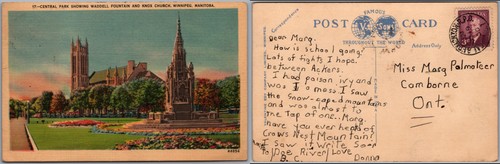 17:-CENTRAL PARK SHOWING WADDELL FOUNTAIN AND KNOX CHURCH, WINNIPEG, MANITOBA.
Correspondence
POST CARD
FAMOUS
THROUGHOUT THE WORLD
Address Only
Dear Marg.
How is school going
Lots of fights I hope.
between Ackers.
I had poison ivy and
was I a mess. I saw
the snow-capped mountains
and was almost to
the Tap of one.. Marg.
have you ever heard of
Crows Nest Mountain?
I saw it Write Soon
To Doe River Love
B.C. Donna
Miss Marg Palmateer
Comborne
Ont.